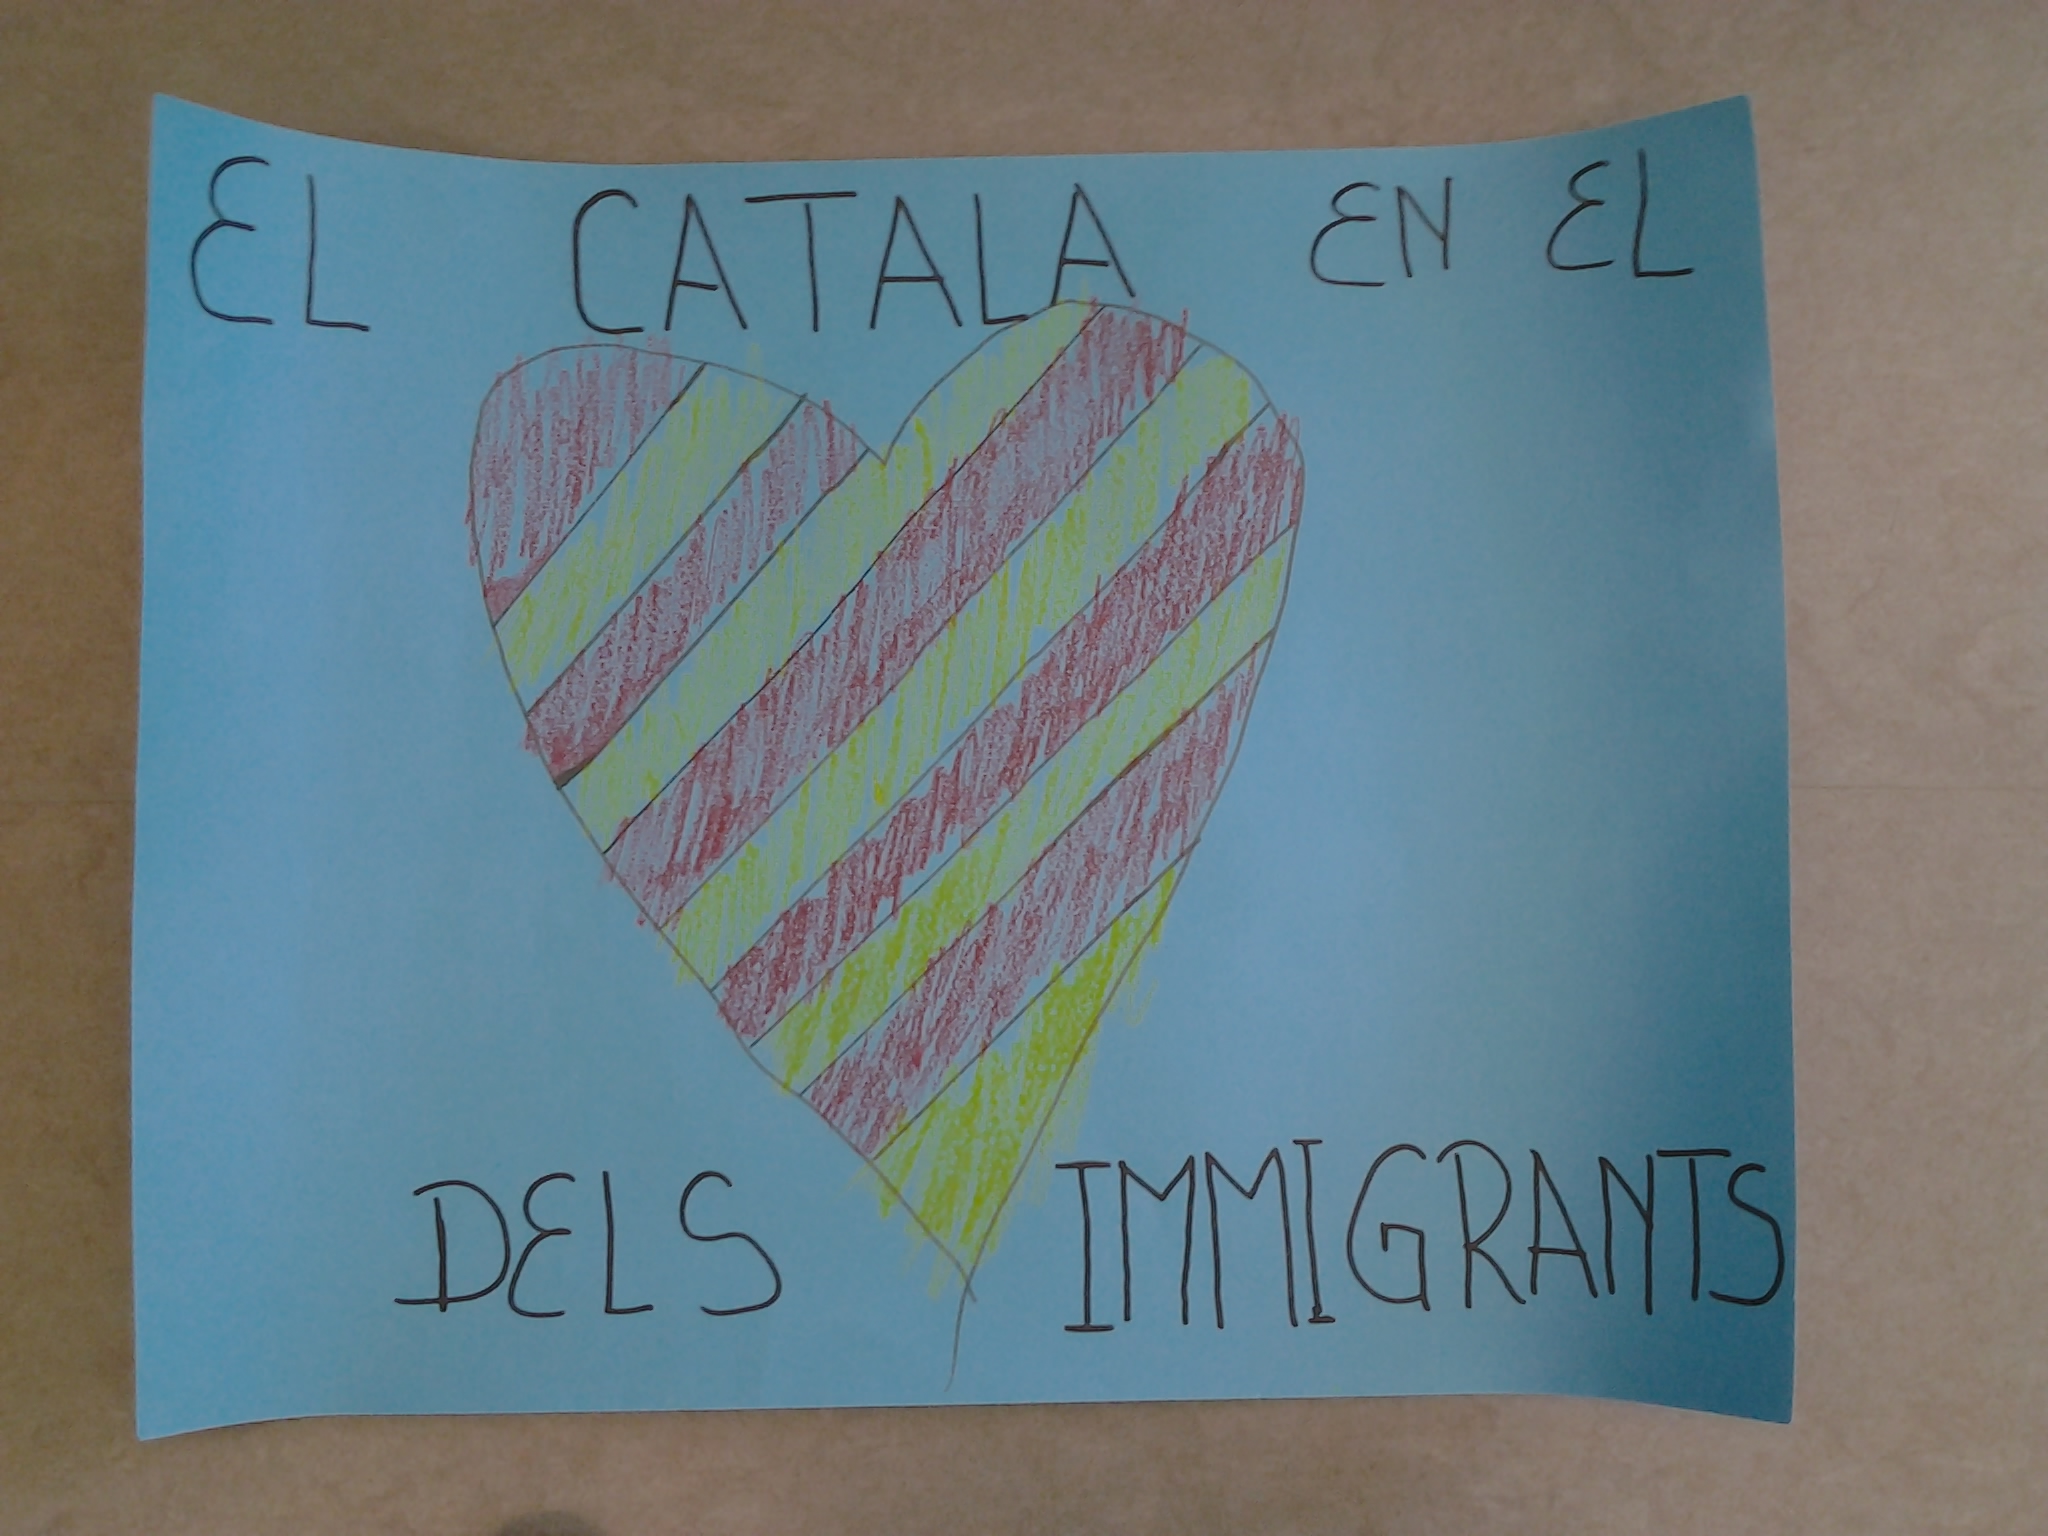 EL CATALA EN EL
DELS IMMIGRANTS